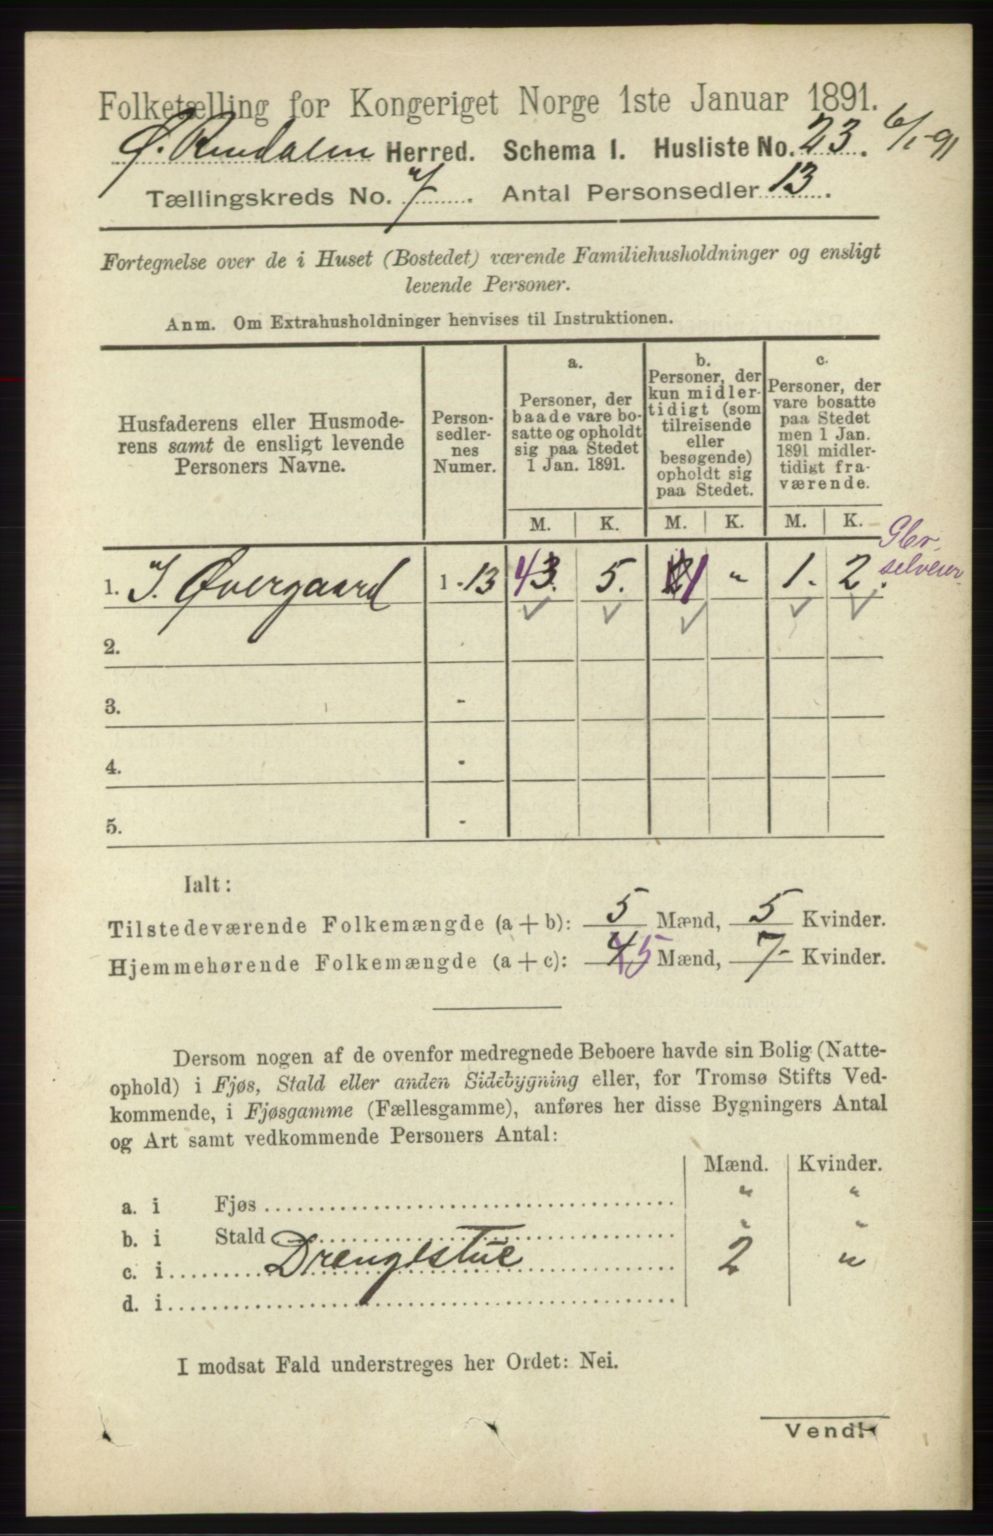 Folketælling for Kongeriget Norge 1ste Januar 1891.
Ø. Rendalen Herred. Schema I. Husliste No. 23. 6/1-91
Tællingskreds No. 7. Antal Personsedler 13.
Fortegnelse over de i Huset (Bostedet) værende Familiehusholdninger og ensligt
levende Personer.
Anm. Om Extrahusholdninger henvises til Instruktionen.
Husfaderens eller Husmode-
rens samt de ensligt levende
Personers Navne.
Person-
sedler-
nes
Numer.
a.
Personer, der
baade vare bo-
satte og opholdt
sig paa Stedet
1 Jan. 1891.
b.
Personer, der
kun midler-
tidigt (som
tilreisende
eller
besøgende)
opholdt sig
paa Stedet.
c.
Personer, der
vare bosatte
paa Stedet
men 1 Jan.
1891 midler-
tidigt fra-
værende.
M. K. M. K. M. K.
Gbr.
selveier
1. Øvergaard 1-13 43. 5. 1 " 1. 2.
2.
3. -
4. -
5. -
Ialt:
Tilstedeværende Folkemængde (a + b): 5 Mænd, 5 Kvinder.
Hjemmehørende Folkemængde (a + c): 4 5 Mænd, 7 Kvinder.
Dersom nogen af de ovenfor medregnede Beboere havde sin Bolig (Natte-
ophold) i Fjøs, Stald eller anden Sidebygning eller, for Tromsø Stifts Ved-
kommende, i Fjøsgamme (Fællesgamme), anføres her disse Bygningers Antal
og Art samt vedkommende Personers Antal:
Mænd. Kvinder.
a. i Fjøs " "
b. i Stald " "
c. i Drengestue 2 "
d. i
I modsat Fald understreges her Ordet: Nei.
Vend!